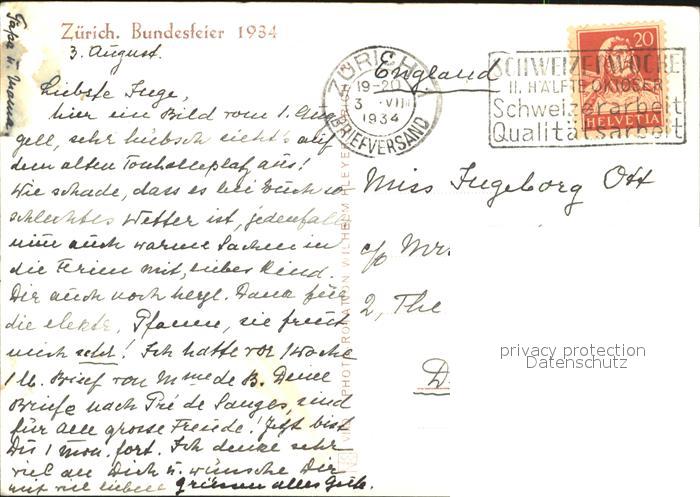 Zürich. Bundesfeier 1934
3. August.
Liebste Inge,
hier ein Bild vom 1. Aug.
gell, sehr hübsch sieht's auf
dem alten Tonhalleplatz aus!
Wie schade, dass es bei Euch so
schlechtes Wetter ist, jedenfalls
nimm auch warme Sachen in
die Ferien mit, liebes Kind.
Dir auch noch herzl. Dank für
die elektr. Pfannen, sie freut
mich sehr! Ich hatte vor 1 Woche
1 lb. Brief von Mmede B. Deine
Briefe nach Pré de Sauges, sind
für alle grosse Freude! Jetzt bist
Du 1 Mon. fort. Ich denke sehr
viel an Dich u. wünsche Dir
mit viel lieben Grüssen alles Gute.
Papa u. Mama
VERLAG PHOTOROTATION WILHELM PLEYER
ZÜRICH
19-20
3. VIII
1934
BRIEFVERSAND
SCHWEIZERWOCHE
II. HÄLFTE OKTOBER
Schweizerarbeit
Qualitätsarbeit
20
HELVETIA
England
Miss Ingeborg Ott
c/o Mrs.
2, The
D
privacy protection
Datenschutz